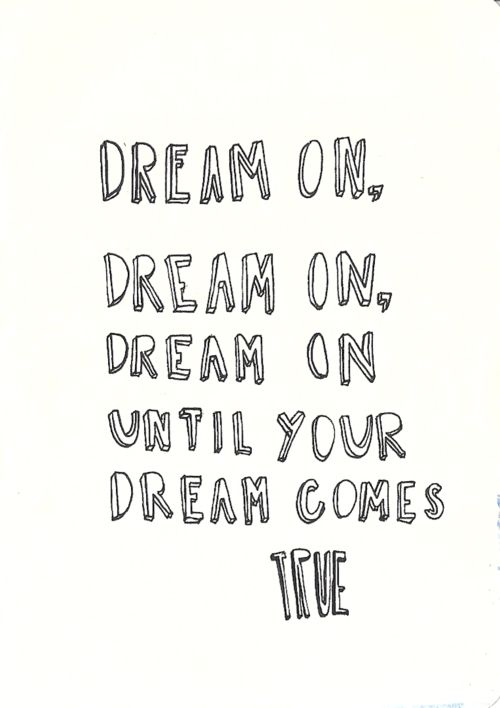 DREAM ON,
DREAM ON,
DREAM ON
UNTIL YOUR
DREAM COMES
TRUE